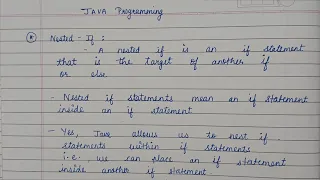 JAVA Programming
* Nested - If :
- A nested if is an if statement
that is the target of another if
or else.
- Nested if statements mean an if statement
inside an if statement.
- Yes, Java allows us to nest if
statements within if statements.
i.e., we can place an if statement
inside another if statement.